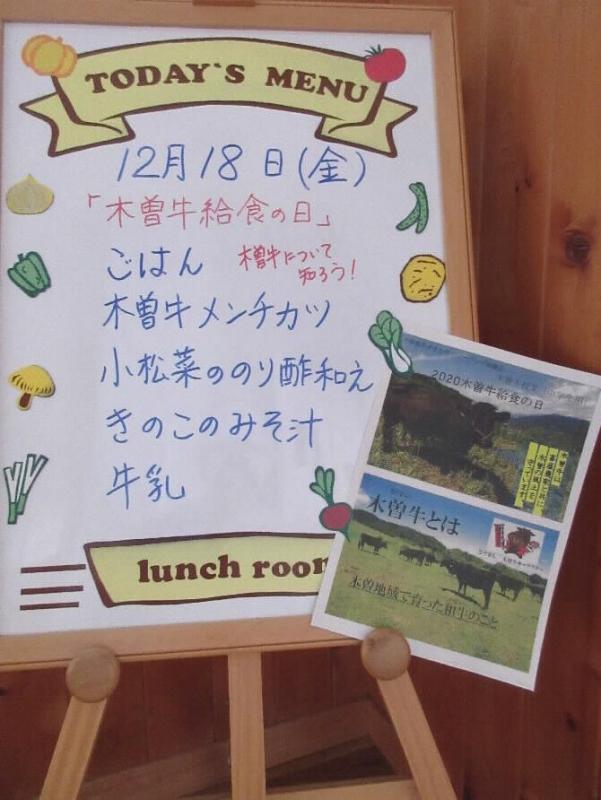 TODAY`S MENU
12月18日(金)
「木曽牛給食の日」
ごはん
木曽牛について
知ろう!
木曽牛メンチカツ
小松菜ののり酢和え
きのこのみそ汁
牛乳
lunch room
2020木曽牛給食の日
木曽牛は
守っています。
木曽牛とは
木曽地域で育った和牛のこと